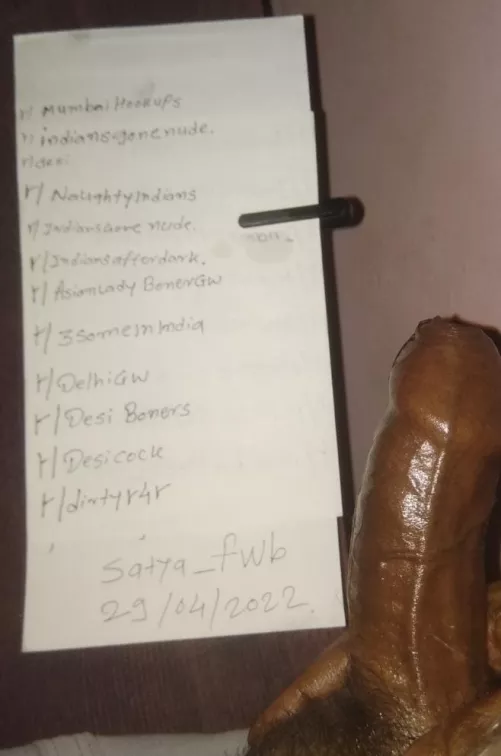 r/ MumbaiHookups
r/ indiansgonenude.
r/desi
r/ NaughtyIndians
r/ Indiansgone nude.
r/Indiansafterdark.
r/ AsianLady BonerGW
r/ 3SomeInIndia
r/DelhiGW
r/Desi Boners
r/Desicock
r/dirtyr4r
Satya_fwb
29/04/2022.